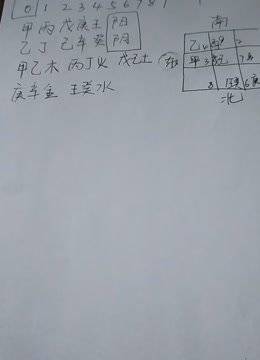 0 1 2 3 4 5 6 7 8 9
甲丙戊庚壬 阳
乙丁己辛癸 阴
甲乙木 丙丁火 戊己土
庚辛金 壬癸水
南
乙 4 9 2
东 甲 3 7
8 1 6 庚
北